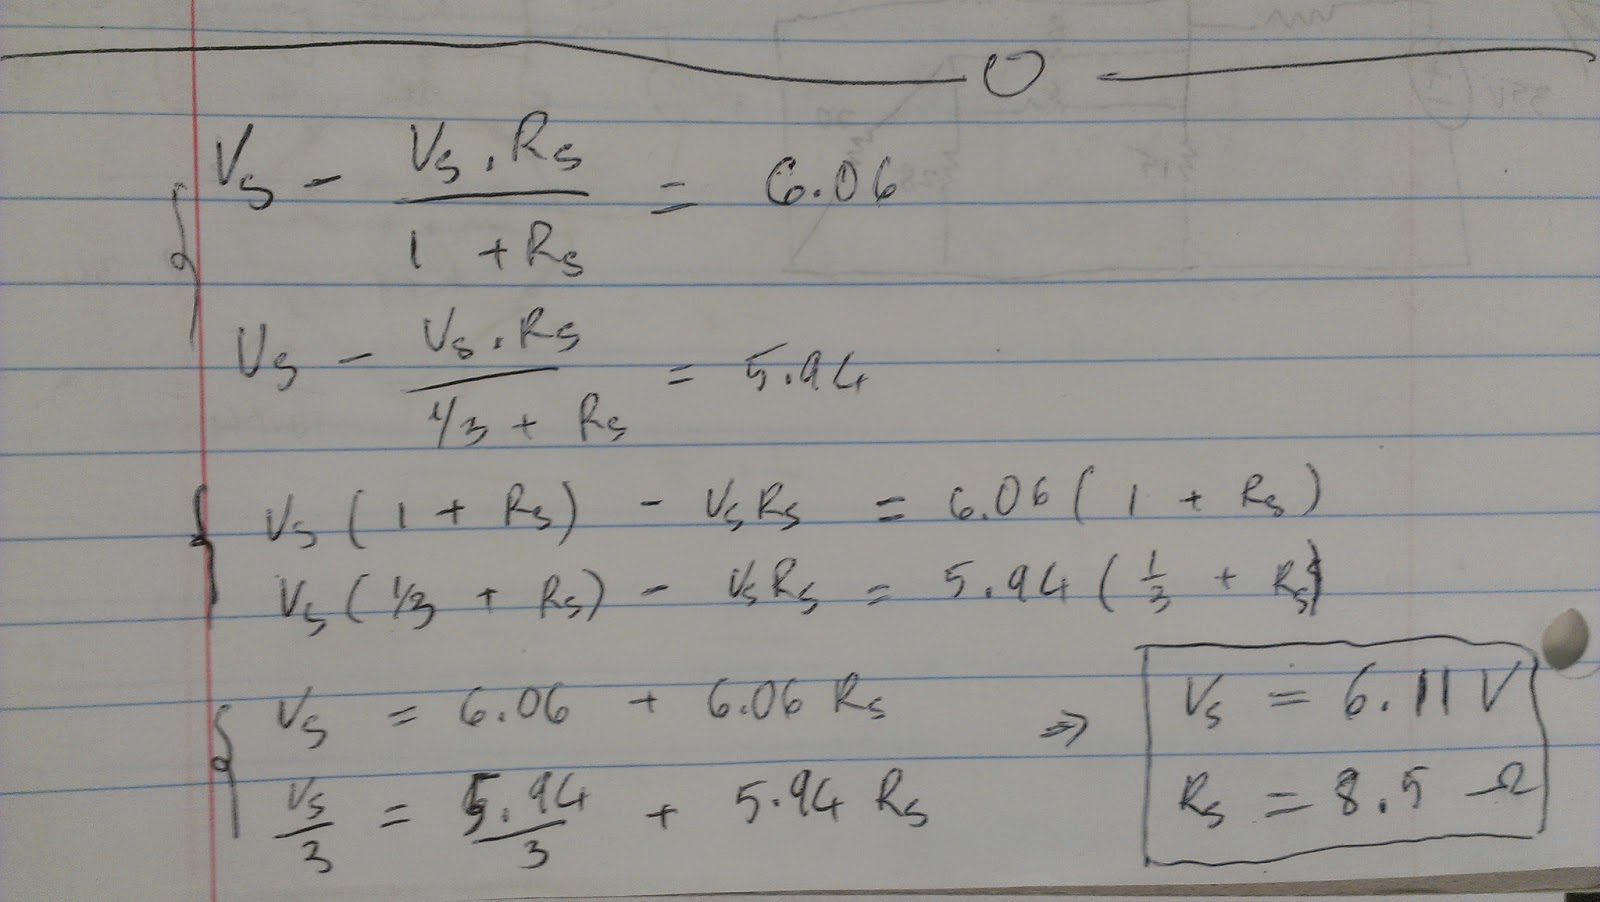 V_S - (V_S . R_S) / (1 + R_S) = 6.06
V_S - (V_S . R_S) / (1/3 + R_S) = 5.94
V_S ( 1 + R_S ) - V_S R_S = 6.06 ( 1 + R_S )
V_S ( 1/3 + R_S ) - V_S R_S = 5.94 ( 1/3 + R_S )
V_S = 6.06 + 6.06 R_S
V_S/3 = 5.94/3 + 5.94 R_S
⇒
V_S = 6.11 V
R_S = 8.5 Ω